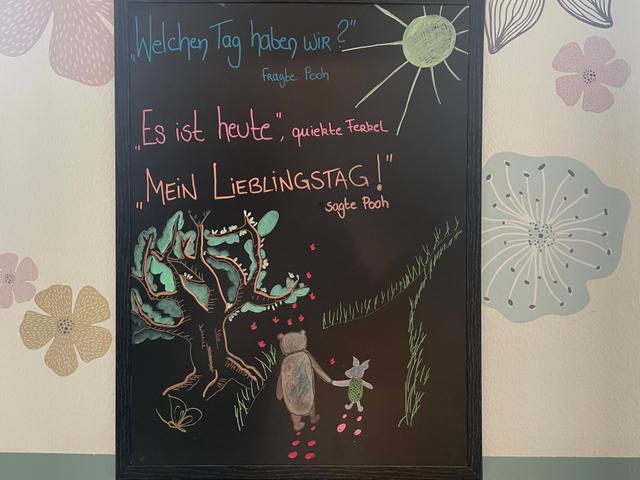 „Welchen Tag haben wir?"
fragte Pooh
„Es ist heute", quiekte Ferkel
„MEIN LIEBLINGSTAG!"
sagte Pooh